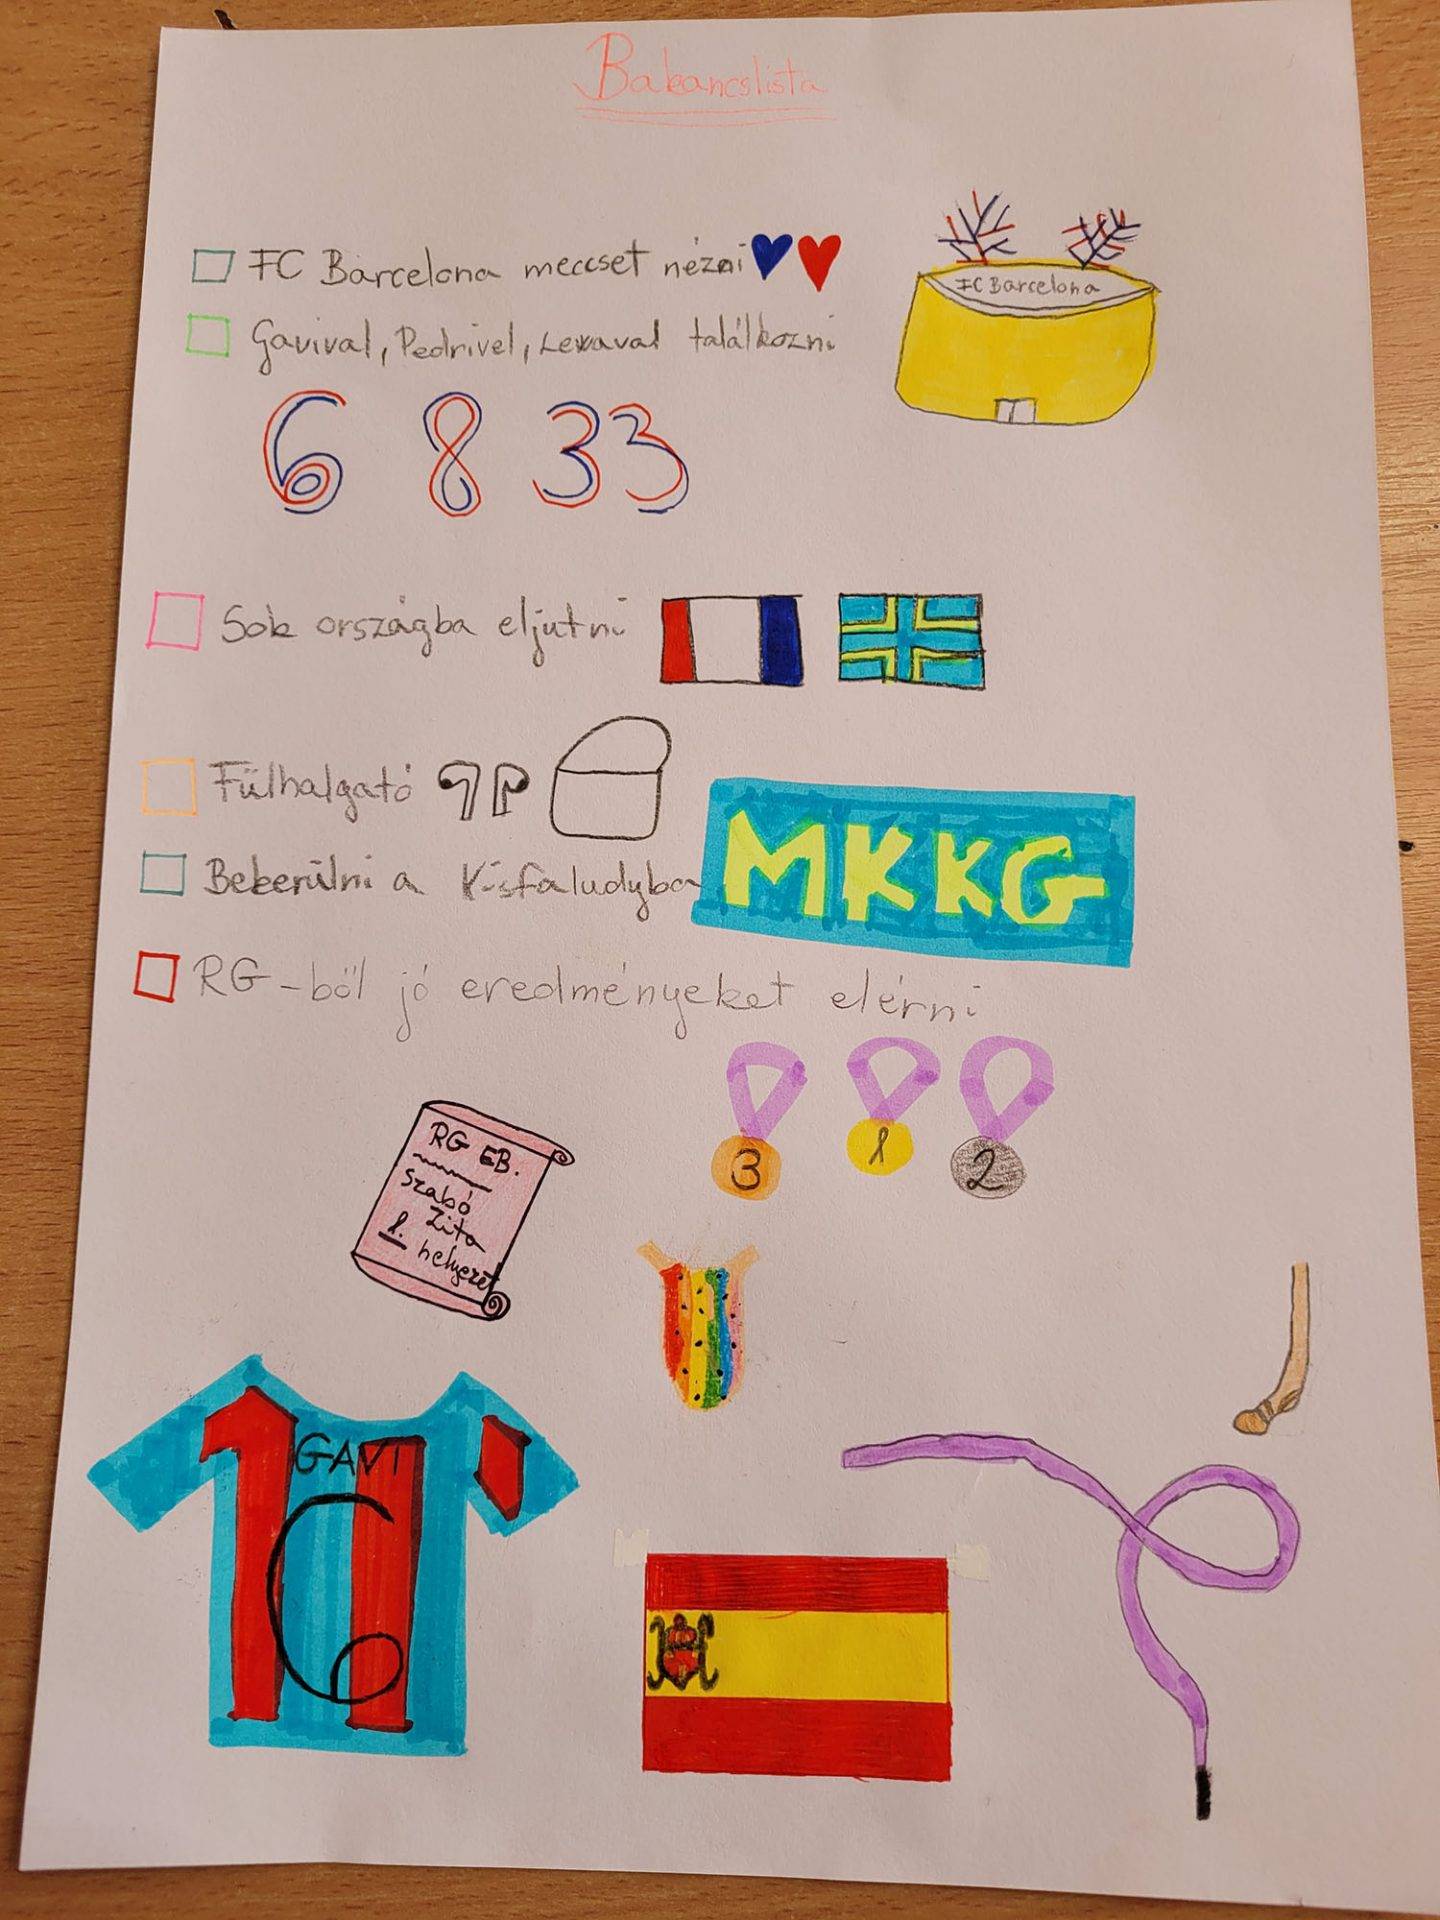 Bakancslista
FC Barcelona meccset nézni
FC Barcelona
Gavival, Pedrivel, Lewaval találkozni
6 8 33
Sok országba eljutni
Fülhalgató
Bekerülni a Kisfaludyba
MKKG
RG-ből jó eredményeket elérni
3 1 2
RG EB.
Szabó
Zita
1. helyezet
GAVI
6